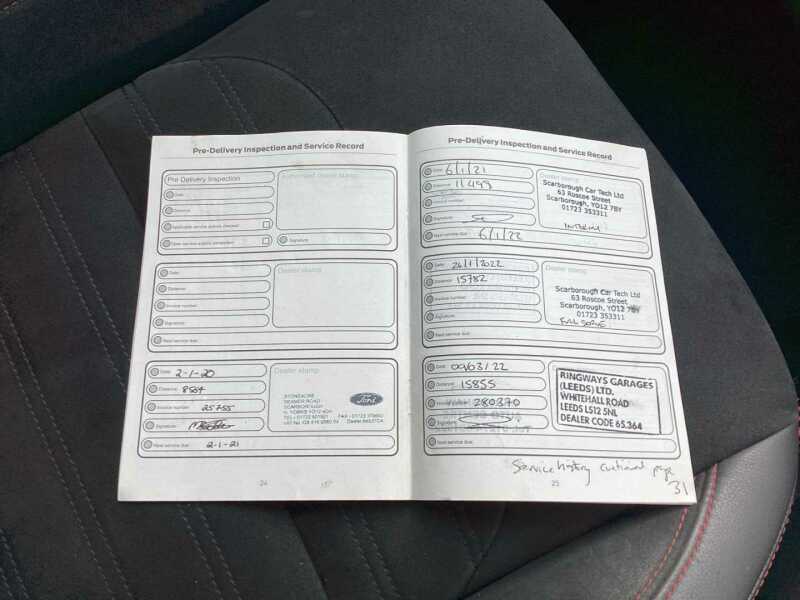 Pre-Delivery Inspection and Service Record
Pre Delivery Inspection
Authorised Dealer stamp
Date:
Distance:
Signature:
Date:
Distance:
Invoice number:
Signature:
Next service due:
Dealer stamp
Date: 2-1-20
Distance:
Invoice number: 25755
Signature:
Next service due: 2-1-21
Dealer stamp
STONEACRE
SEAMER ROAD
SCARBOROUGH
Ford
24
Pre-Delivery Inspection and Service Record
Date: 6/1/21
Distance: 11493
Invoice number:
Signature:
Next service due: 6/1/22
Dealer stamp
Scarborough Car Tech Ltd
63 Roscoe Street
Scarborough, YO12 7BY
01723 353311
INTERIM
Date: 26/1/2022
Distance: 15782
Invoice number:
Signature:
Next service due:
Dealer stamp
Scarborough Car Tech Ltd
63 Roscoe Street
Scarborough, YO12 7BY
01723 353311
Date: 09/03/22
Distance: 15855
Invoice number: 280370
Signature:
Next service due:
RINGWAYS GARAGES
(LEEDS) LTD.
WHITEHALL ROAD
LEEDS LS12 5NL
DEALER CODE 65.364
Service history continued page
31
25